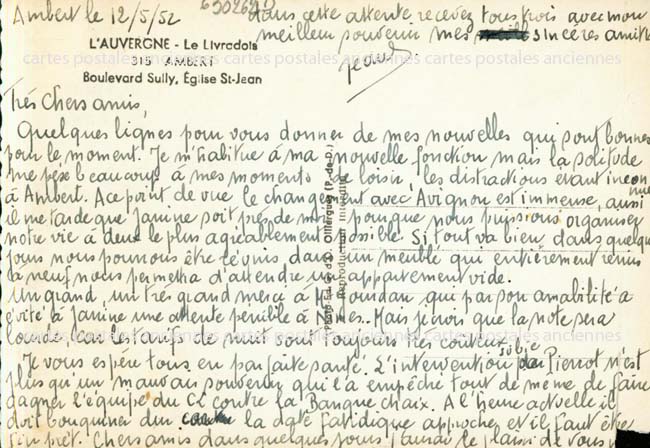 Ambert le 12/5/52
dans cette attente recevez tous trois avec mon
meilleur souvenir mes sincères amitiés
L'AUVERGNE - Le Livradois
315 AMBERT
Boulevard Sully, Église St-Jean
cartes postales anciennes cartes postales anciennes cartes postales anciennes
Très Chers amis,
Quelques lignes pour vous donner de mes nouvelles qui sont bonnes
pour le moment. Je m'habitue à ma nouvelle fonction mais la solitude
me pèse beaucoup à mes moments de loisir, les distractions étant incon
nues
à Ambert. A ce point de vue le changement avec Avignon est immense, aussi
il me tarde que Janine soit près de moi pour que nous puissions organiser
notre vie à deux le plus agréablement possible. Si tout va bien dans quelques
jours nous pourrons être réunis, dans un meublé qui entièrement remis
à neuf nous permettra d'attendre un appartement vide.
Un grand, un très grand merci à M. Jourdan, qui par son amabilité a
évité à Janine une attente pénible à Nîmes. Mais je vois que la note sera
lourde car les tarifs de nuit sont toujours très coûteux.
cartes postales anciennes cartes postales anciennes cartes postales anciennes
Je vous espère tous en parfaite santé. L'intervention subie
par Pierrot n'est
plus qu'un mauvais souvenir qui l'a empêché tout de même de faire
gagner l'équipe du CL contre la Banque Chaix. A l'heure actuelle il
doit bouquiner dur la date fatidique approche et il faut être
fin prêt. Chers amis dans quelques jours j'aurai le plaisir de vous
Reproduction interdite